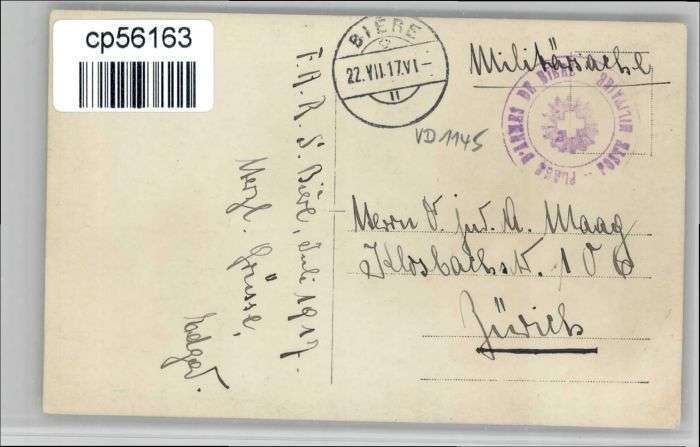 cp56163
BIÈRE
22.VII.17.VI-
Militärsache
PLACE D'ARMES DE BIÈRE - POSTE MILITAIRE
VD 1145
F.A.R.S. Bière, Juli 1917.
Herzl. Grüsse,
Edgar.
Herrn D. jur. A. Maag
Klosbachstr. 106
Zürich